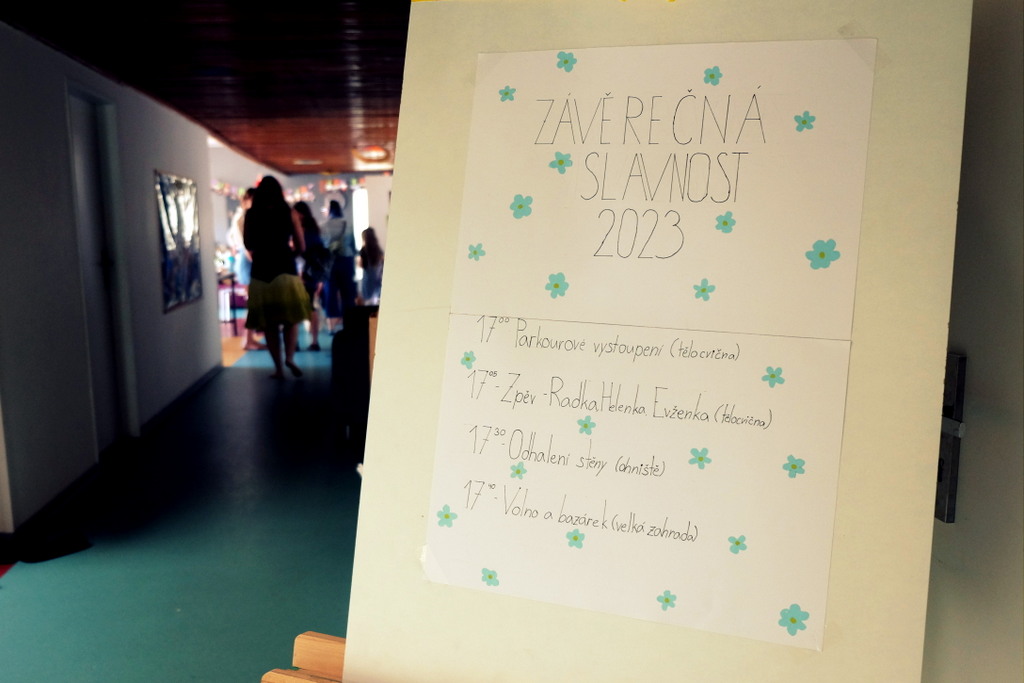 ZÁVĚREČNÁ
SLAVNOST
2023
17⁰⁰ Parkourové vystoupení (tělocvična)
17⁰⁵- Zpěv - Radka, Helenka, Evženka (tělocvična)
17³⁰- Odhalení stěny (ohniště)
17⁴⁰- Volno a bazárek (velká zahrada)